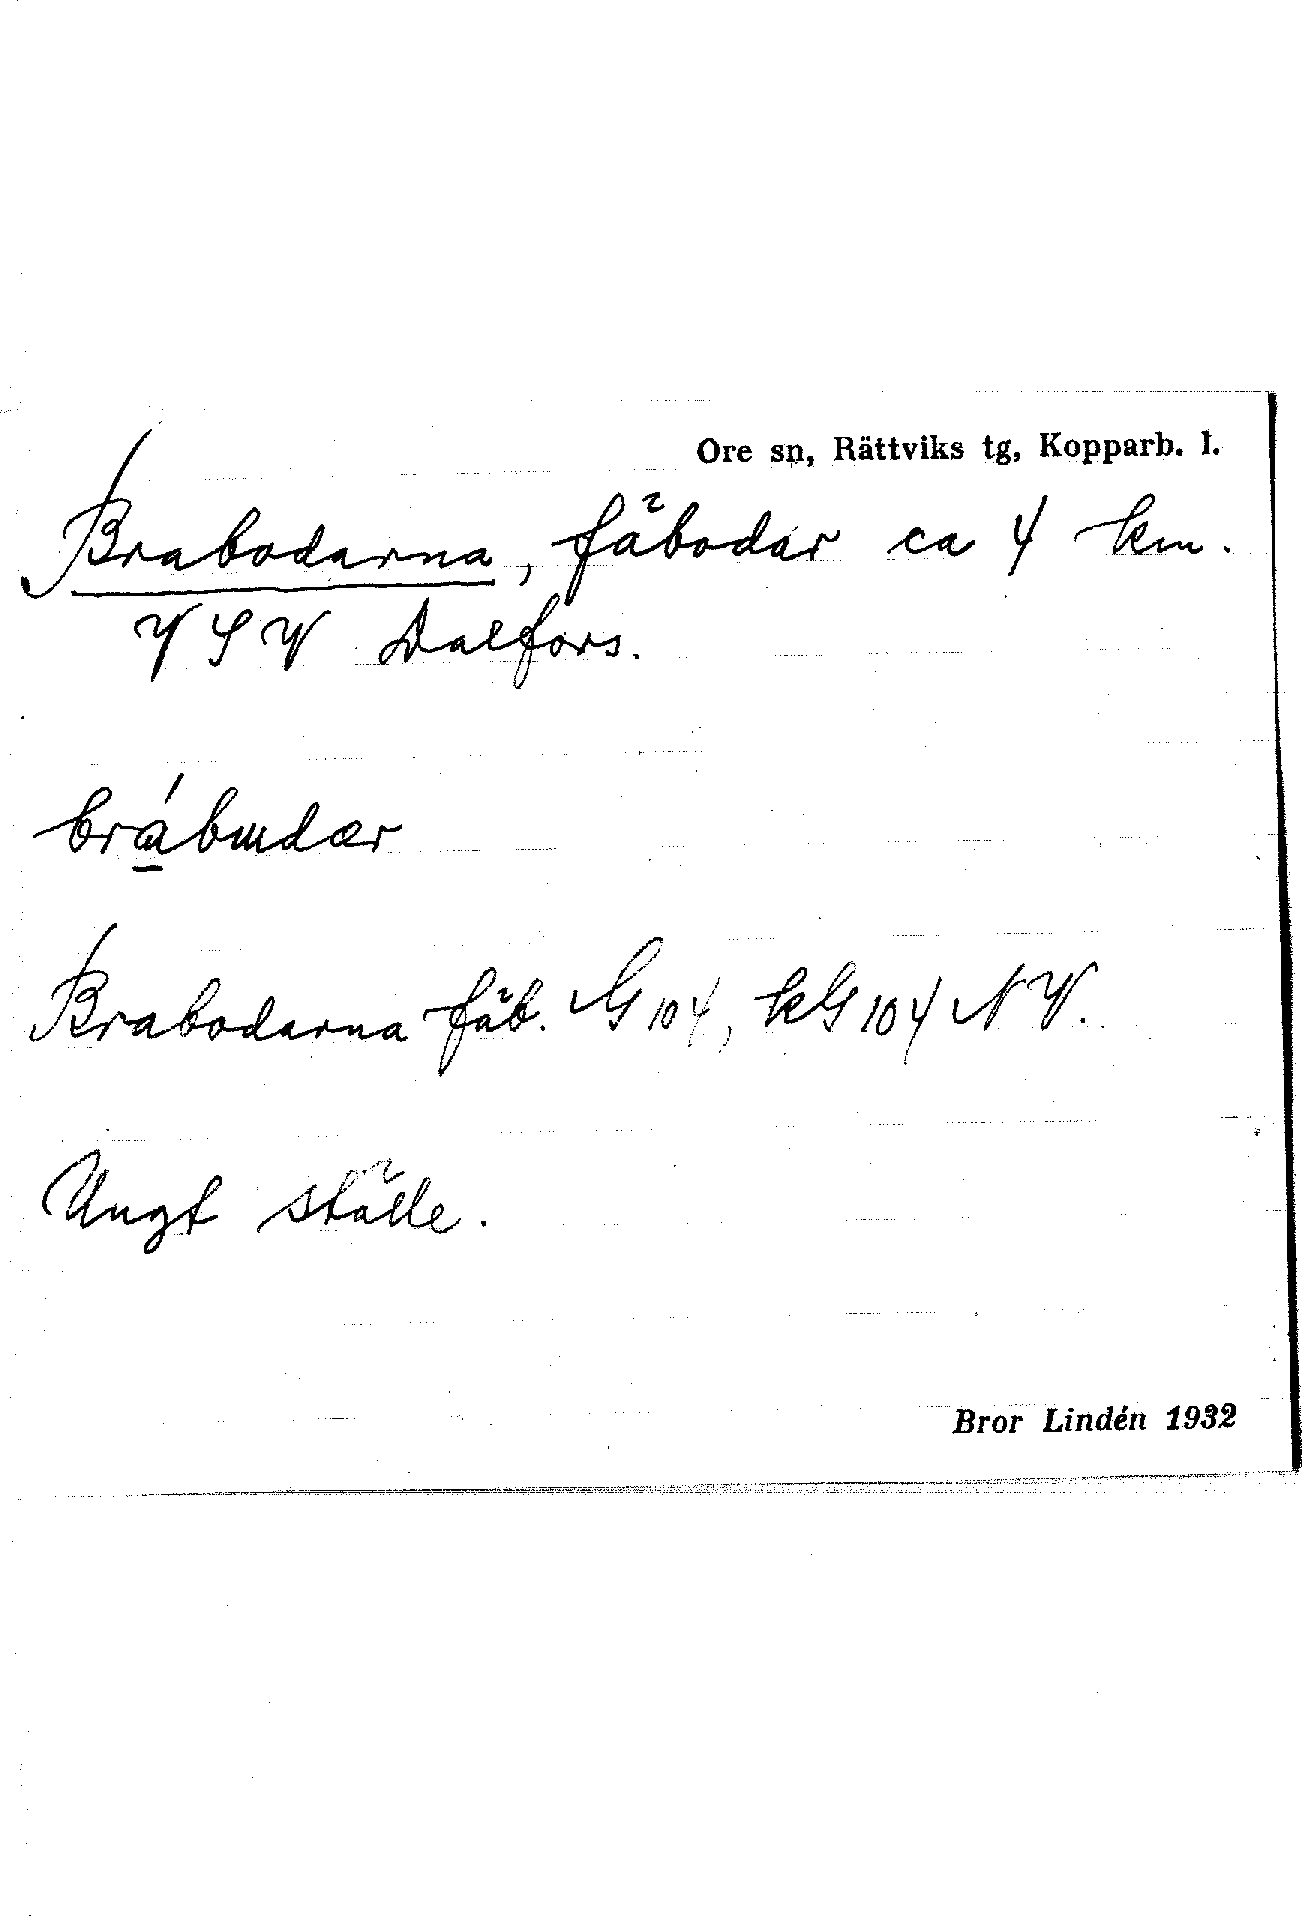 Ore sn, Rättviks tg, Kopparb. l.
Brabodarna, fäbodar ca 4 km.
VSV Dalfors.
Brabodarna fäb. G104, kG104 NV.
Ungt ställe.
Bror Lindén 1932